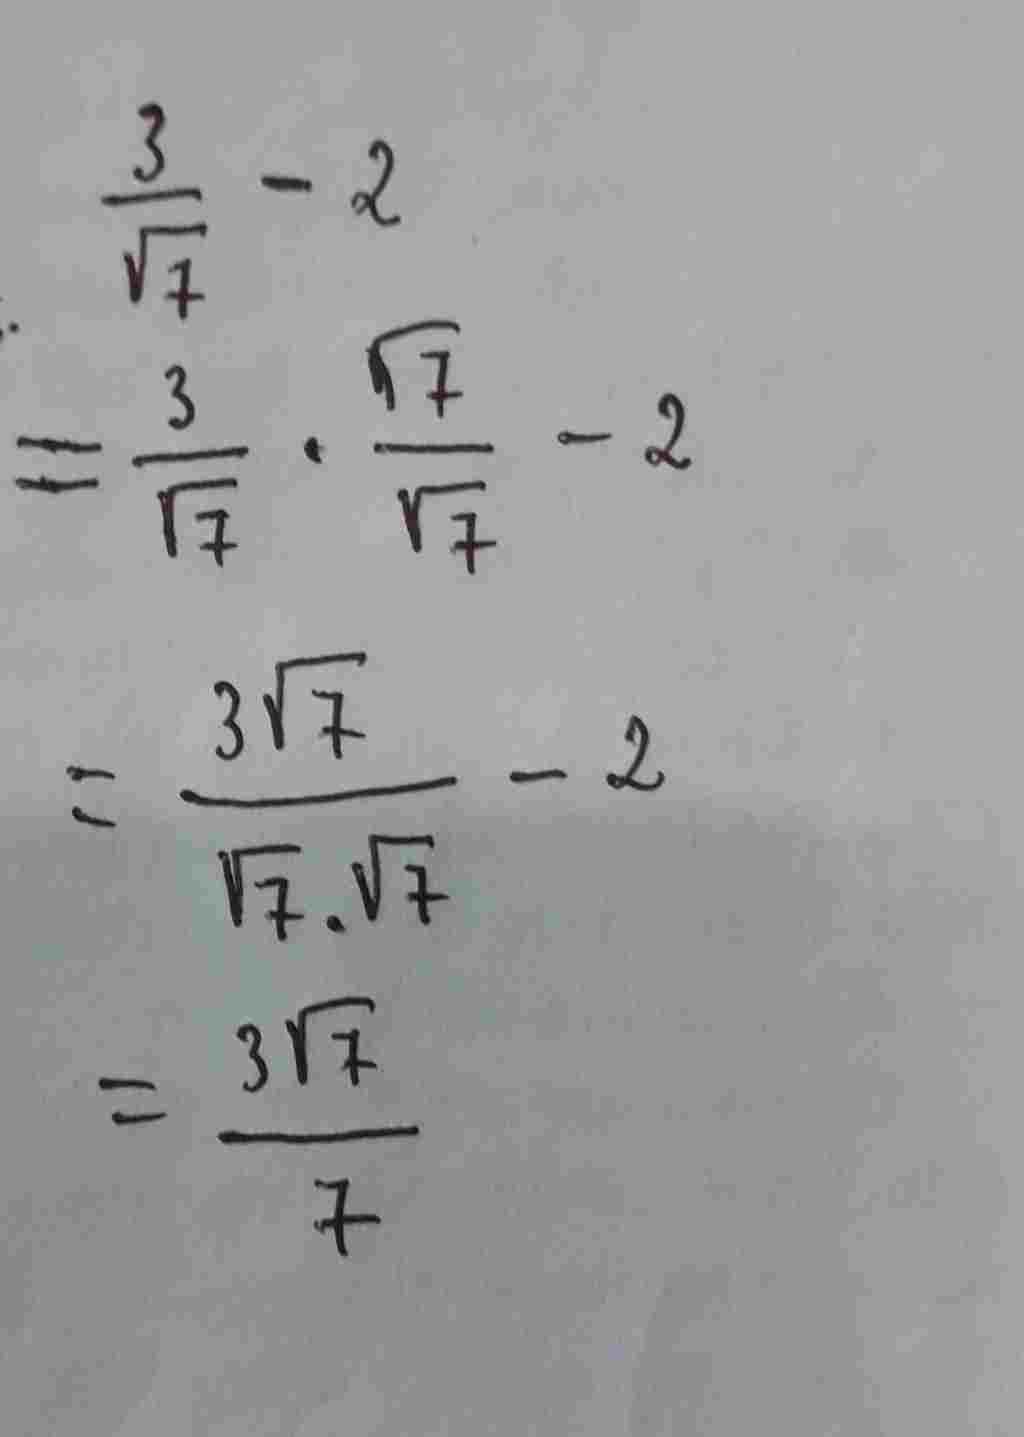 3/√7 - 2
= 3/√7 · √7/√7 - 2
= 3√7/√7.√7 - 2
= 3√7/7